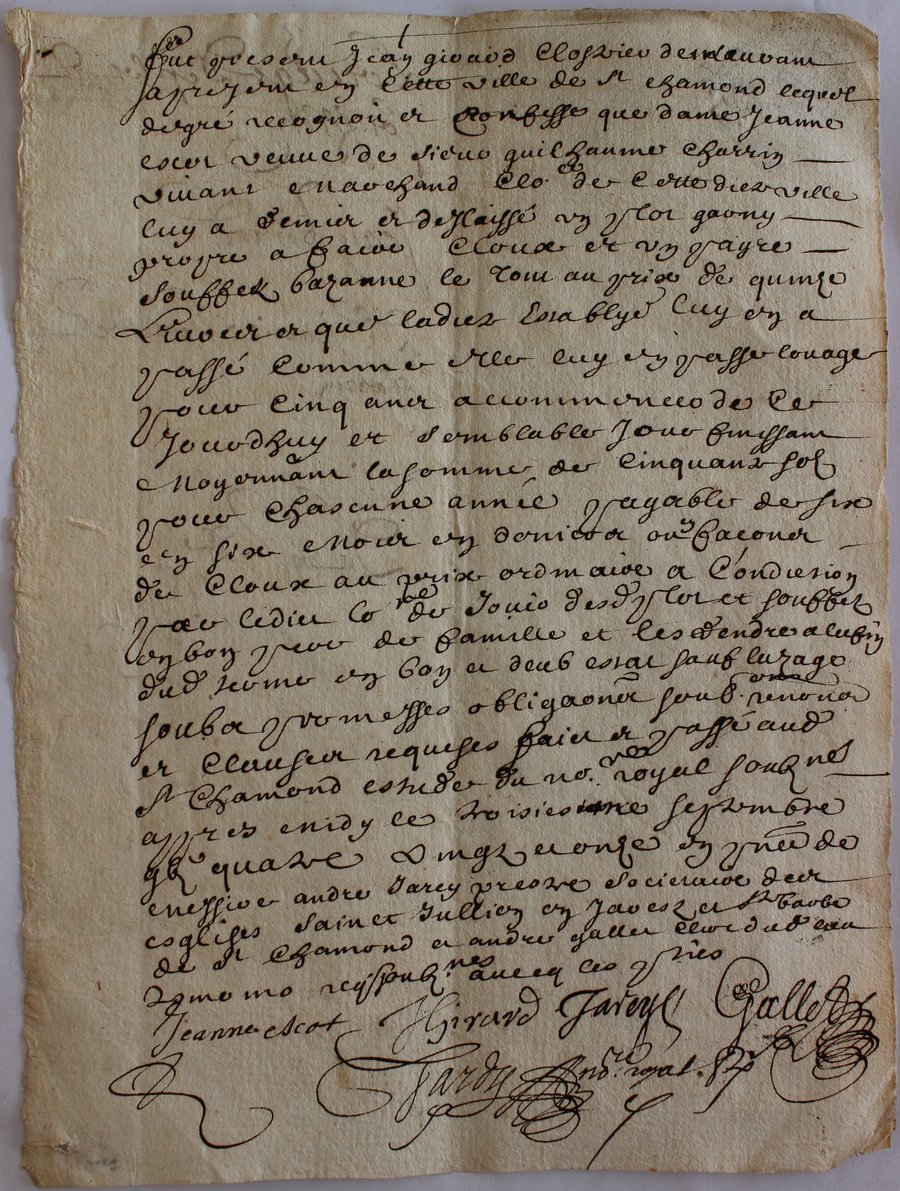 Fut present Jean girard Closrier
a present en Cette ville de St chamond lequel
degré recognoit et Confesse que dame Jeanne
escot veuve de sieur guilhaume Charrin
vivant Marchand de Cette dicte ville
luy a remis et deslaissé un plot garny
propre a faire Cloux et un payre
souffletz bazanne le tout au prix de quinze
Livres et que ladicte luy en a
passé comme elle luy en passe louage
pour Cinq ans a commencer de Ce
Jourdhuy et semblable Jour finissant
Moyennant la somme de Cinquante sols
pour Chascune année payable de six
en six Mois en deniers ou facons
de Cloux au prix ordinaire a Condition
par ledict de Jouir desd plot et souffletz
en bon pere de famille et les rendre a la fin
dud terme en bon et deub estat sauf luzage
soubz promesses obligaons soub renonons
et Clauses requises faict et passé aud
St Chamond estude du nore royal soubzné
appres midy le troisiesme septembre
quatre vingtz et onze en pnce de
messire andre Jarey prestre societaire des
esglises Sainct Jullien en Jarest et Ste barbe
de St Chamond et andre gallet Clerc dud lieu
tesmoins soubznes avecq les pties
Jeanne escot JGirard Jarey Gallet
Tardy nore royal